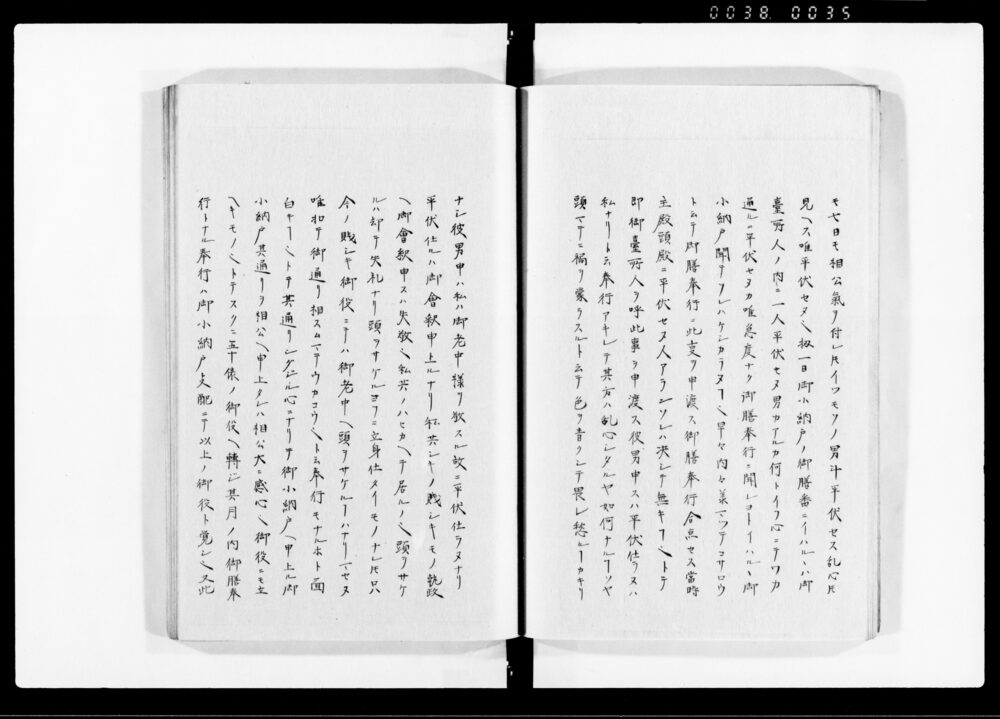 0038. 0035
モ七日モ相公氣ヲ付レ𪜈イツモソノ男斗平伏セス乱心𪜈
見ヘス唯平伏セヌ也扨一日御小納戸ノ御膳番ニイハルヽハ御
臺所人ノ内ニ一人平伏セヌ男カアルカ何トイフ心ニテワカ
通ルニ平伏セヌカ唯急度ナク御膳奉行ニ聞レヨトイハルヽ御
小納戸聞テソレハケシカラヌヿ也早々内々義マツテコサロウ
トム テ御膳奉行ニ此支ヲ申渡ス御膳奉行合点セス當時
主殿頭殿ニ平伏セヌ人アランソレハ決シテ無キヿ也トテ
即御臺所人ヲ呼此事ヲ申渡ス彼男申スハ平伏仕ラヌハ
私ナリト云奉行アキレテ其方ハ乱心シタルヤ如何ナルヿソヤ
頭マテニ禍ヲ蒙ラスルトムテ色ヲ青クシテ畏レ愁ルヿカキリ
ナシ彼男申ハ私ハ御老中様ヲ敬スル故ニ平伏仕ラヌナリ
平伏仕ルハ御會釈申上ルナリ私共シキノ賎シキモノ執政
ヘ御會釈申スハ失敬也私共ノハヒカヘテ居ルノ也頭ヲサケ
ルハ却テ失礼ナリ頭ヲサケルヨリニ立身仕タイモノナレ𪜈ロハ
今ノ賎シキ御役ニテハ御老中ヘ頭ヲサケルヿハナリマセヌ
唯扣テ御通リ相スムマテウカコウ也ト云奉行モナルホト面
白キヿ也トテ其通リシタル心ニナリテ御小納戸ヘ申上ル御
小納戸其通リヲ相公ヘ申上タレハ相公大ニ感心也御役ニモ立
ヘキモノ也トテスクニ五十俵ノ御役ヘ轉シ其月ノ内御膳奉
行トナル奉行ハ御小納戸支配ニテ以上ノ御役ト覚シ又此